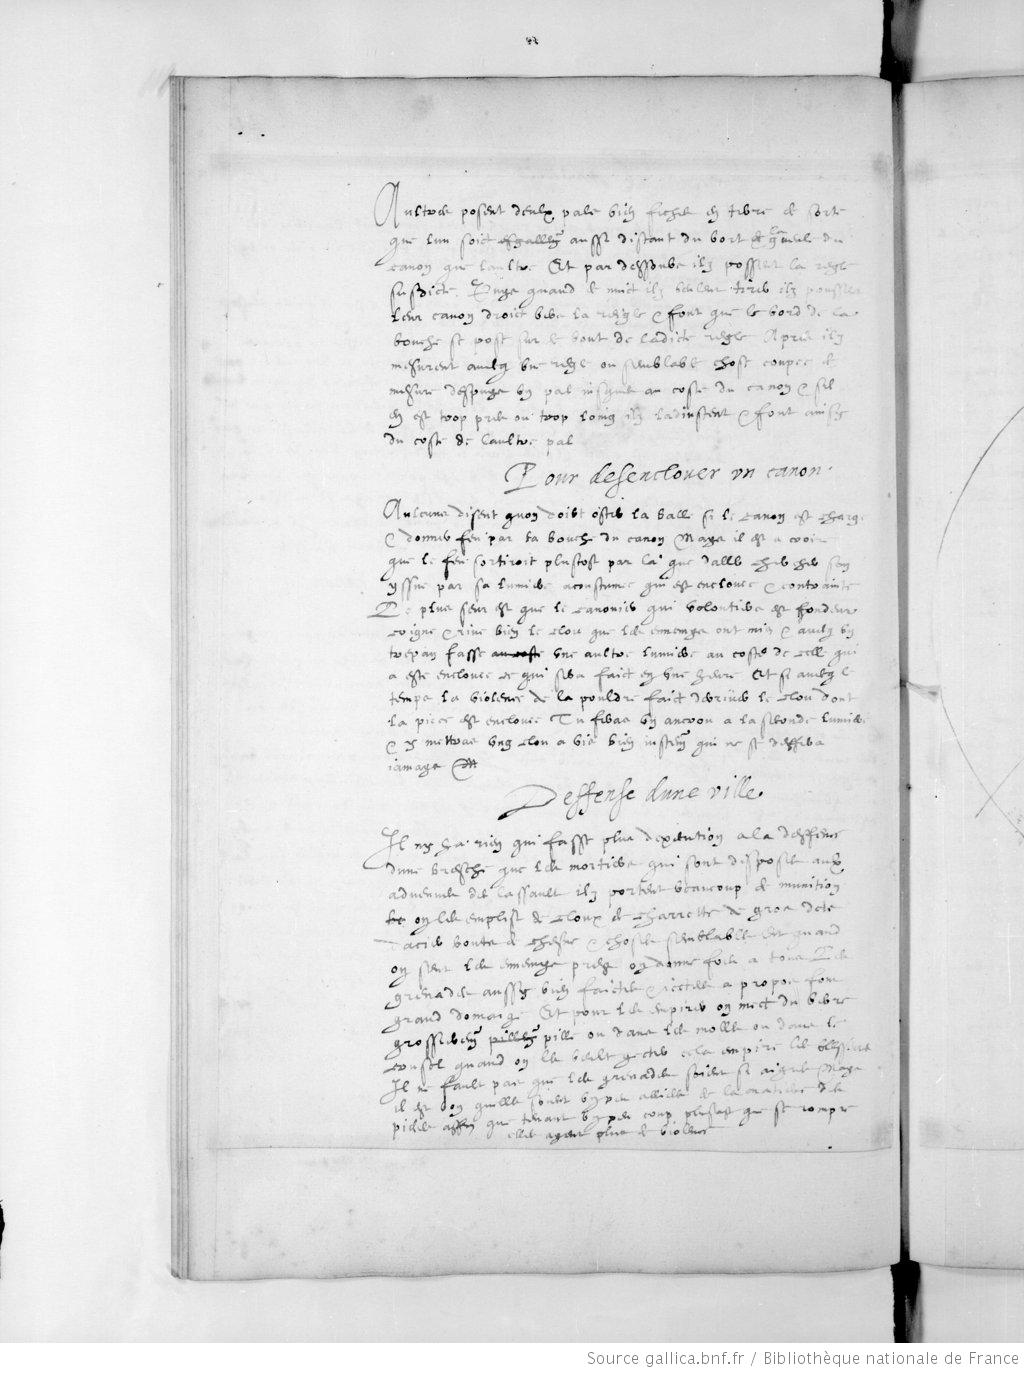 Aultres posent deulx pals bien fichés en terre de sorte
que lun soict esgallem aussi distant du bort de la gueule du
canon que laultre Et par dessoubs ilz possent la regle
susdicte. Puys quand de nuict ilz veulent tirer ilz poussent
leur canon droict vers la reigle & font que le bord de la
bouche se pose sur le bout de ladicte regle Apres ilz
mesurent avecq une regle ou semblable chose coupee de
mesure despuys un pal jusques au coste du canon & sil
en est trop pres ou trop loing ilz ladjustent & font ainsy
du coste de laultre pal
Pour desenclouer un canon.
Aulcuns disent quon doibt oster la balle si le canon est charge
& donner feu par la bouche du canon Mays il est a croire
que le feu sortiroit plustost par là que daller chercher son
yssue par sa lumiere acoustumee qui est enclouee & contrainte
Le plus seur est que le canonier qui volontiers est fondeur
coigne & rive bien le clou que les ennemys ont mis & avecq un
trepan fasse au coste une aultre lumiere au coste de celle qui
a este enclouee ce qui sera faict en une heure Et si avecq le
temps la violence de la pouldre faict desriver le clou dont
la piece est enclouee Tu feras un ancron a la seconde lumiere
& y mettras ung clou a vis bien juste qui ne se deffera
jamays
Deffense dune ville.
Il ny ha rien qui fasse plus dexecution a la deffense
dune bresche que les mortiers qui sont disposés aulx
advenues de lassault ilz portent beaucoup de munition
te on les emplist de cloux de charrette de gros dets
dacier bouts de chesne & choses semblables Et quand
on sent les ennemys pres on donne foeu a tous Les
grenades aussy bien faictes & jectees a propos font
grand domaige Et pour les empirer on mect du verre
grossierem pillem pillé ou dans les molles ou dans le
canon quand on les veult gecter cela empire les blessures
Il ne fault pas que les grenades soient si aigres Mays
il est bon quelles soient un peu alliees de la matiere des
pieces affin que tenant un peu coup plustost que se rompre
elles ayent plus de violence
Source gallica.bnf.fr / Bibliothèque nationale de France